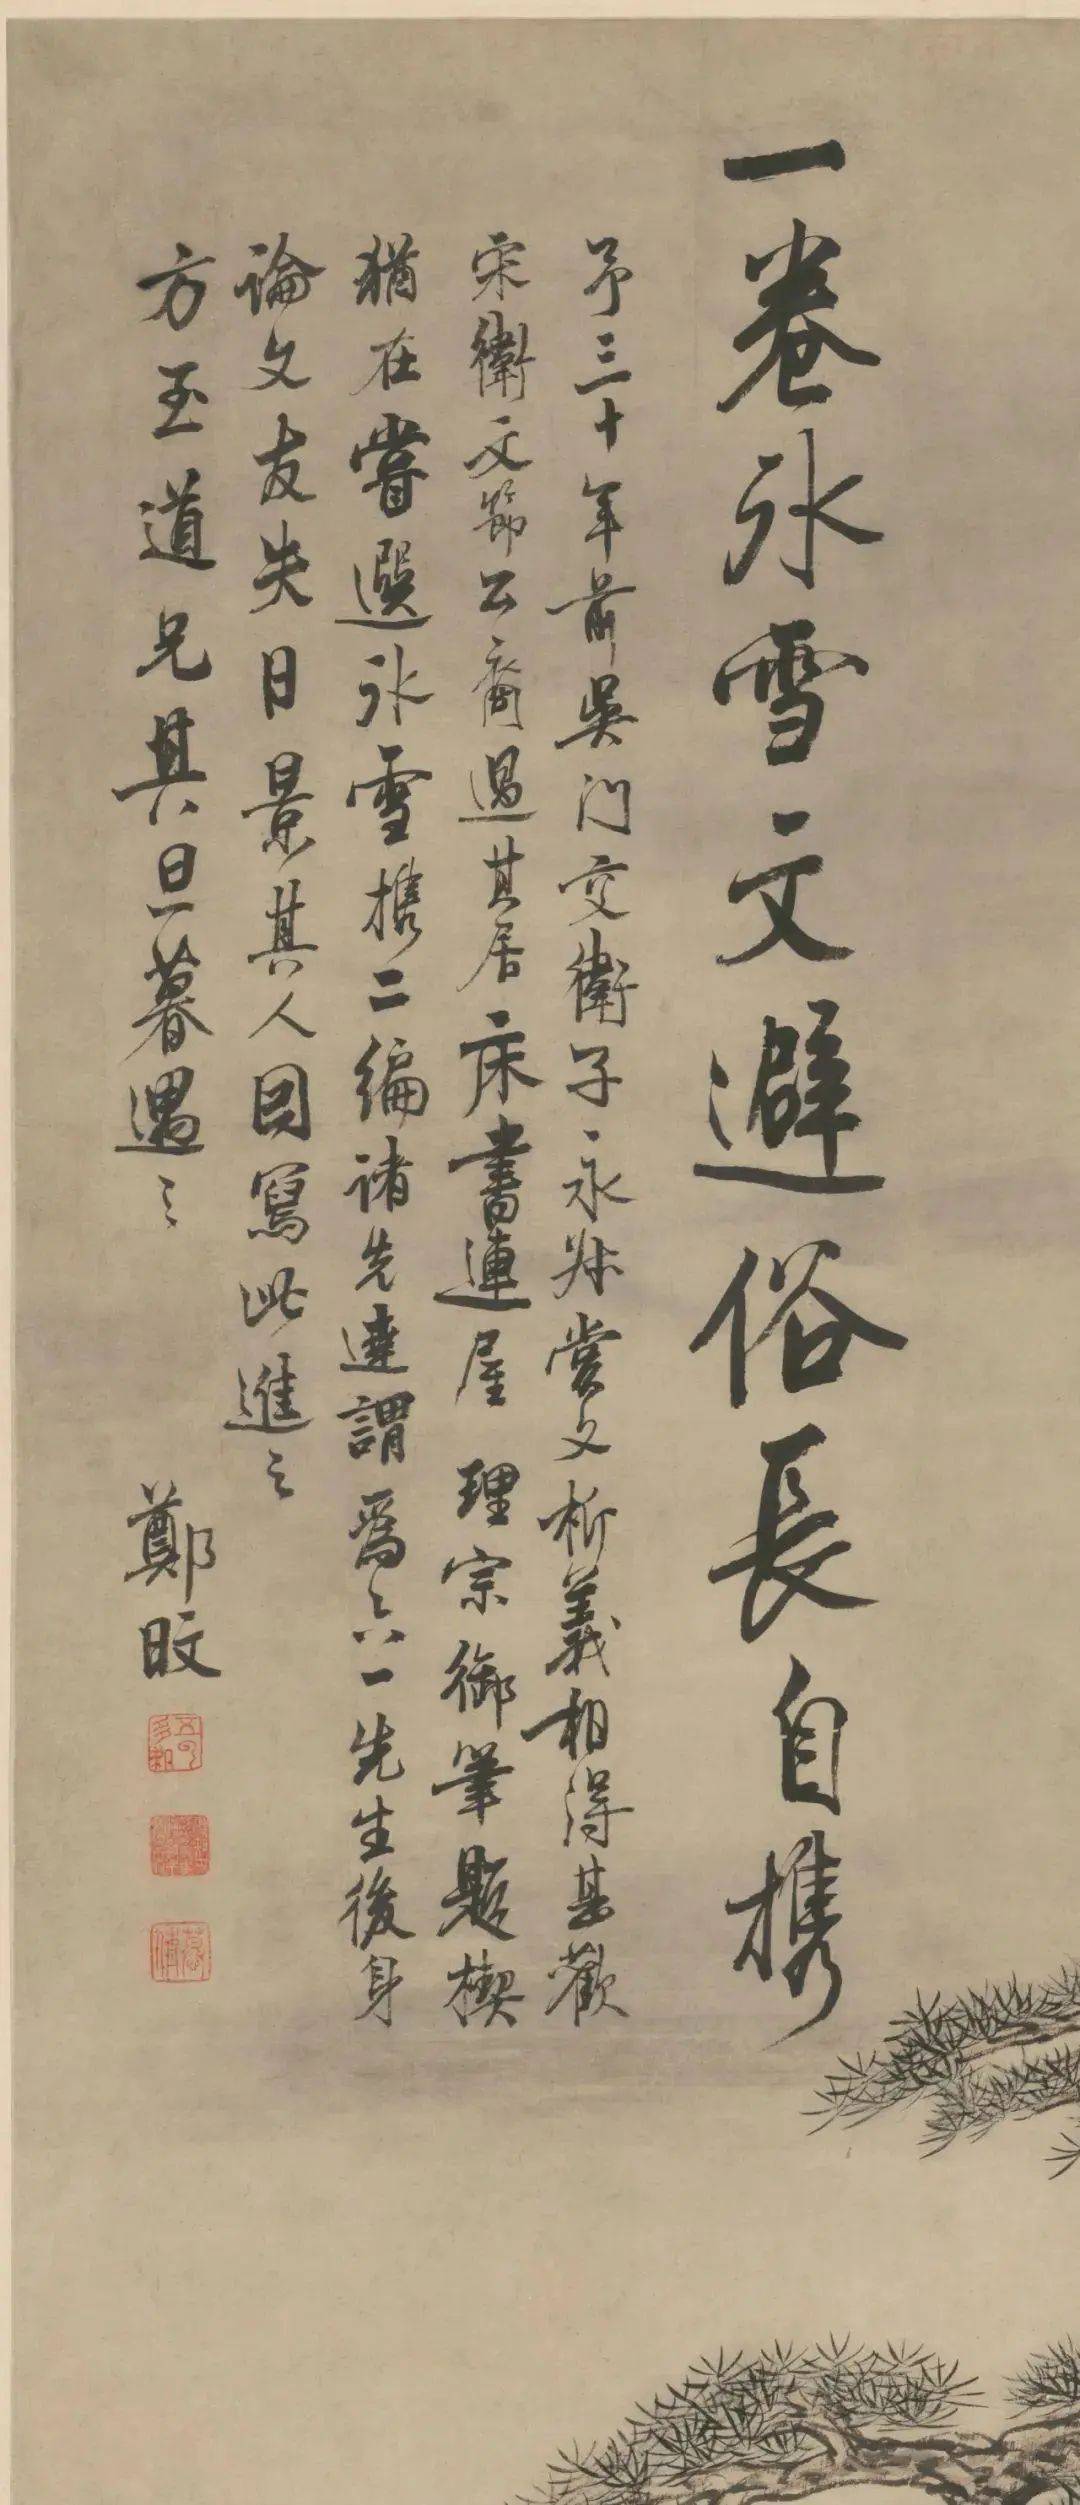 一卷冰雪文避俗長自携
予三十年前吳門交衛子永叔賞文析義相得甚歡
宋衛文節公裔過其居床書連屋理宗御筆題楔
猶在嘗選冰雪携二編諸先達謂爲六一先生後身
論文友失日景其人因寫此進之
方玉道兄其旦暮遇之
鄭旼